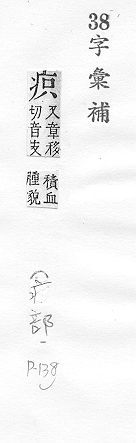 38字彙補
疻
又章移
切音支
積血
腫貌
(疒部)
P.138